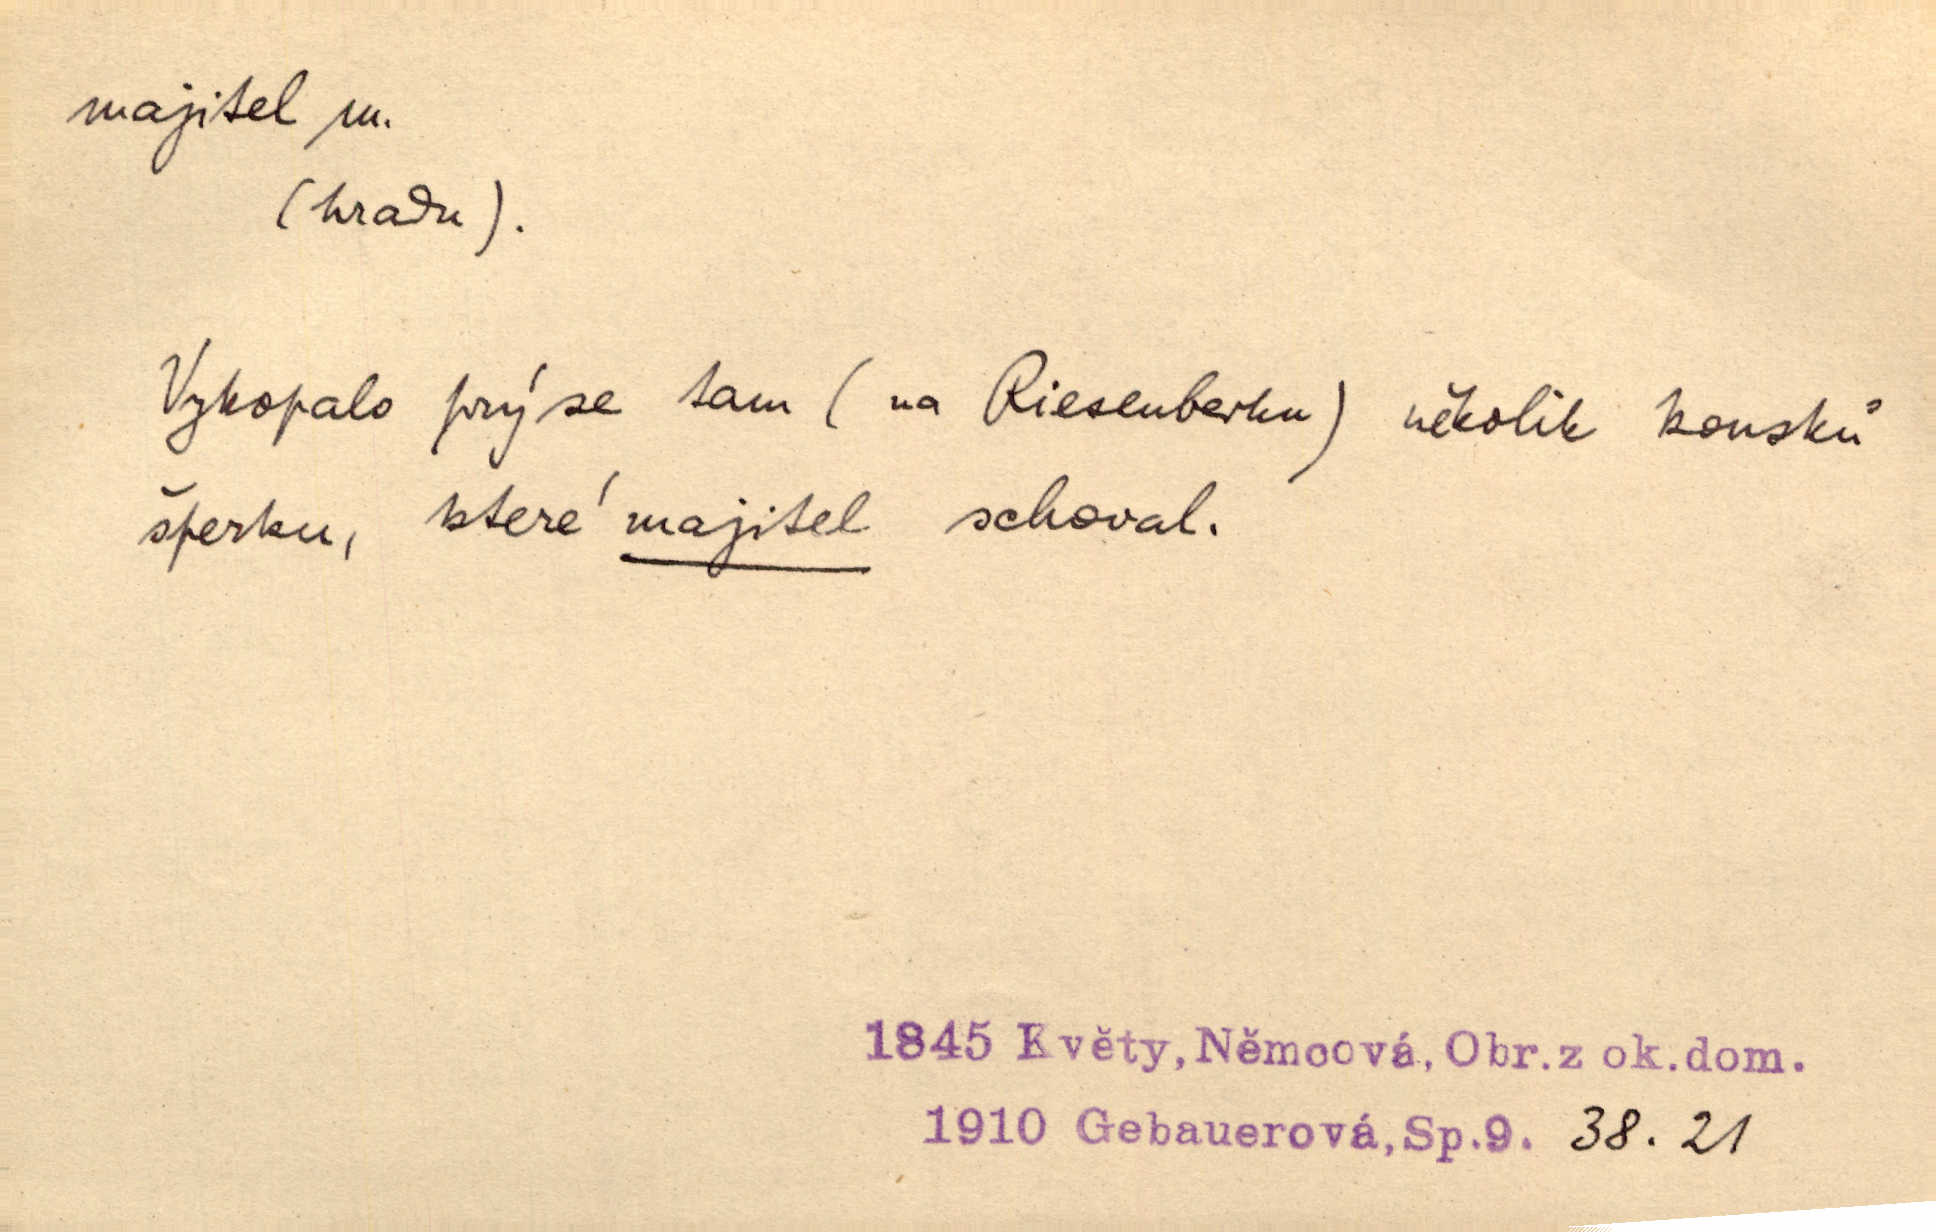 majitel m.
(hradu).
Vykopalo prý se tam (na Riesenberku) několik kousků
šperku, které majitel schoval.
1845 Květy, Němcová, Obr. z ok. dom.
1910 Gebauerová, Sp. 9. 38. 21